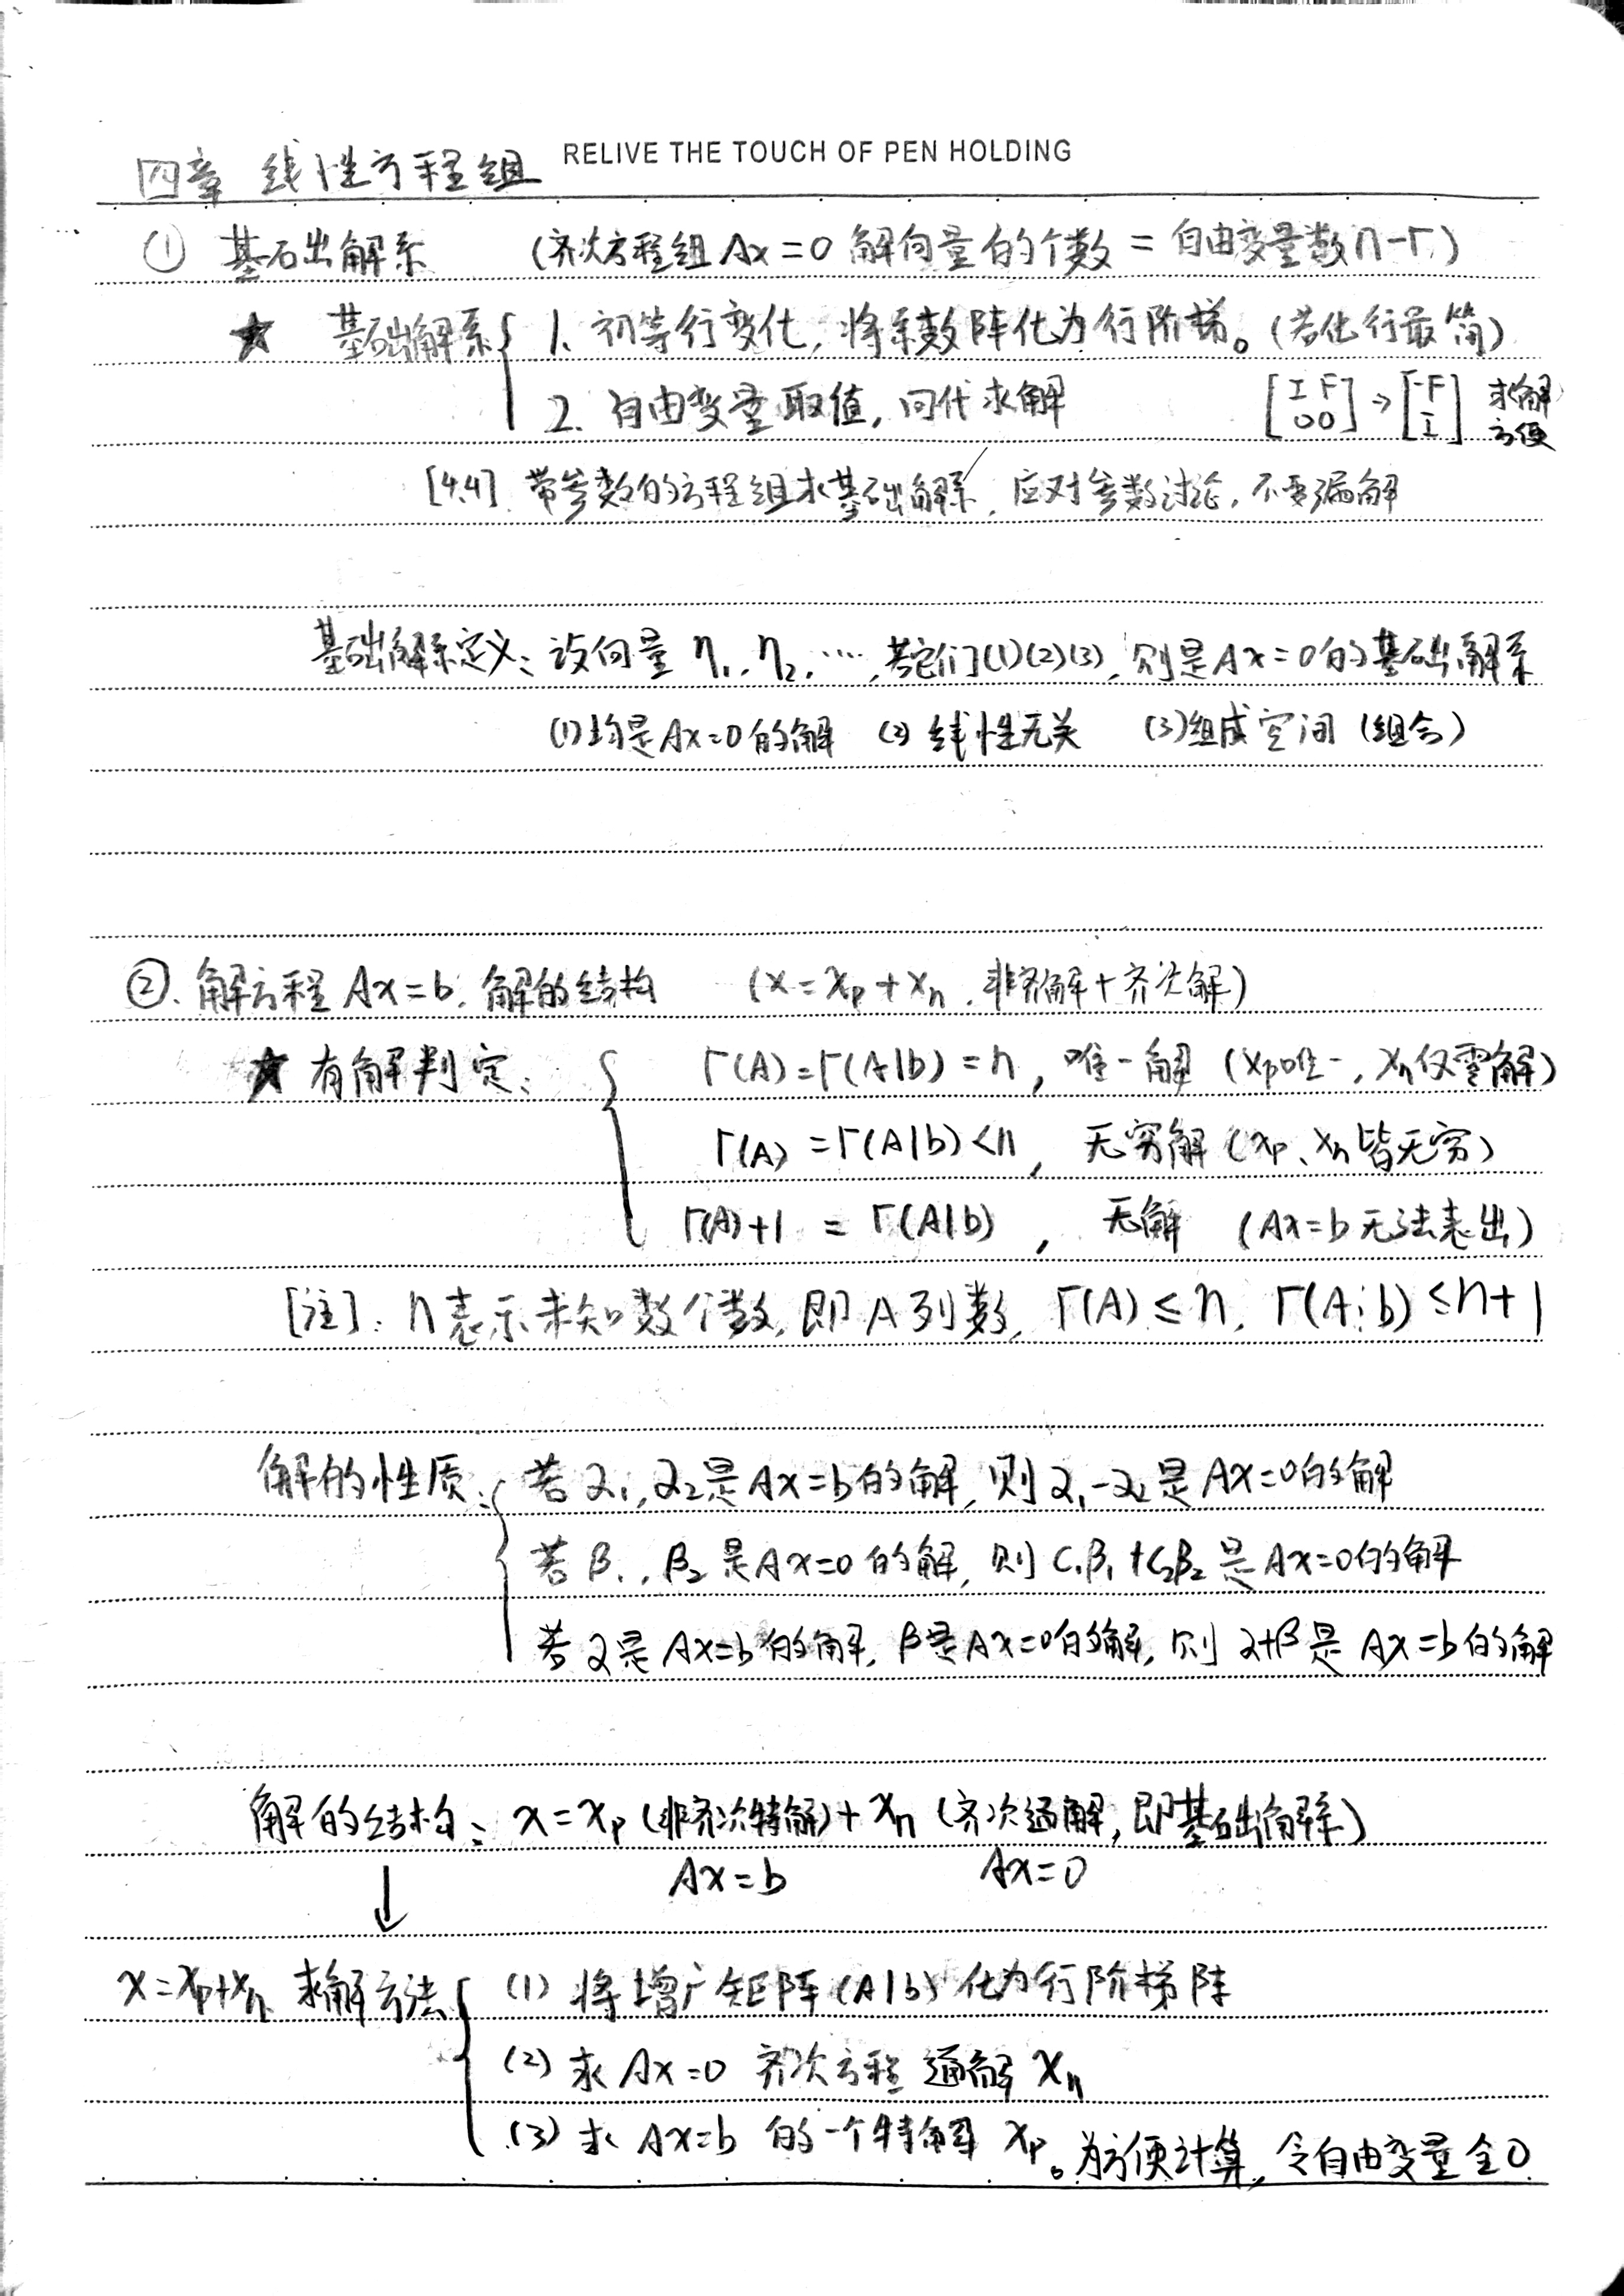 RELIVE THE TOUCH OF PEN HOLDING
四章 线性方程组
① 基础解系 (齐次方程组Ax=0 解向量的个数 = 自由变量数n-r)
★ 基础解系 { 1、初等行变化, 将系数阵化为行阶梯。(若化行最简)
2. 自由变量取值, 回代求解 [I F
0 0] → [-F
I] 求解
方便
[4.4] 带参数的方程组求基础解系, 应对参数讨论, 不要漏解
基础解系定义: 设向量 η₁, η₂, …, 若它们(1)(2)(3), 则是Ax=0的基础解系
(1)均是Ax=0的解 (2) 线性无关 (3)组成空间 (组合)
②. 解方程 Ax=b. 解的结构 (x=xₚ+xₙ. 非齐解+齐次解)
★ 有解判定: { r(A)=r(A|b)=n, 唯一解 (xₚ唯一, xₙ仅零解)
r(A)=r(A|b)<n, 无穷解 (xₚ、xₙ皆无穷)
r(A)+1 = r(A|b), 无解 (Ax=b无法表出)
[注]: n表示未知数个数, 即A列数, r(A)≤n, r(A¦b)≤n+1
解的性质: { 若α₁,α₂是Ax=b的解, 则α₁-α₂是Ax=0的解
若β₁,β₂是Ax=0的解, 则C₁β₁+C₂β₂是Ax=0的解
若α是Ax=b的解, β是Ax=0的解, 则α+β是Ax=b的解
解的结构: x=xₚ(非齐次特解)+xₙ(齐次通解, 即基础解系)
↓ Ax=b Ax=0
x=xₚ+xₙ 求解方法 { (1) 将增广矩阵(A|b)化为行阶梯阵
(2) 求Ax=0 齐次方程 通解 xₙ
(3) 求Ax=b 的一个特解 xₚ。为方便计算, 令自由变量全0